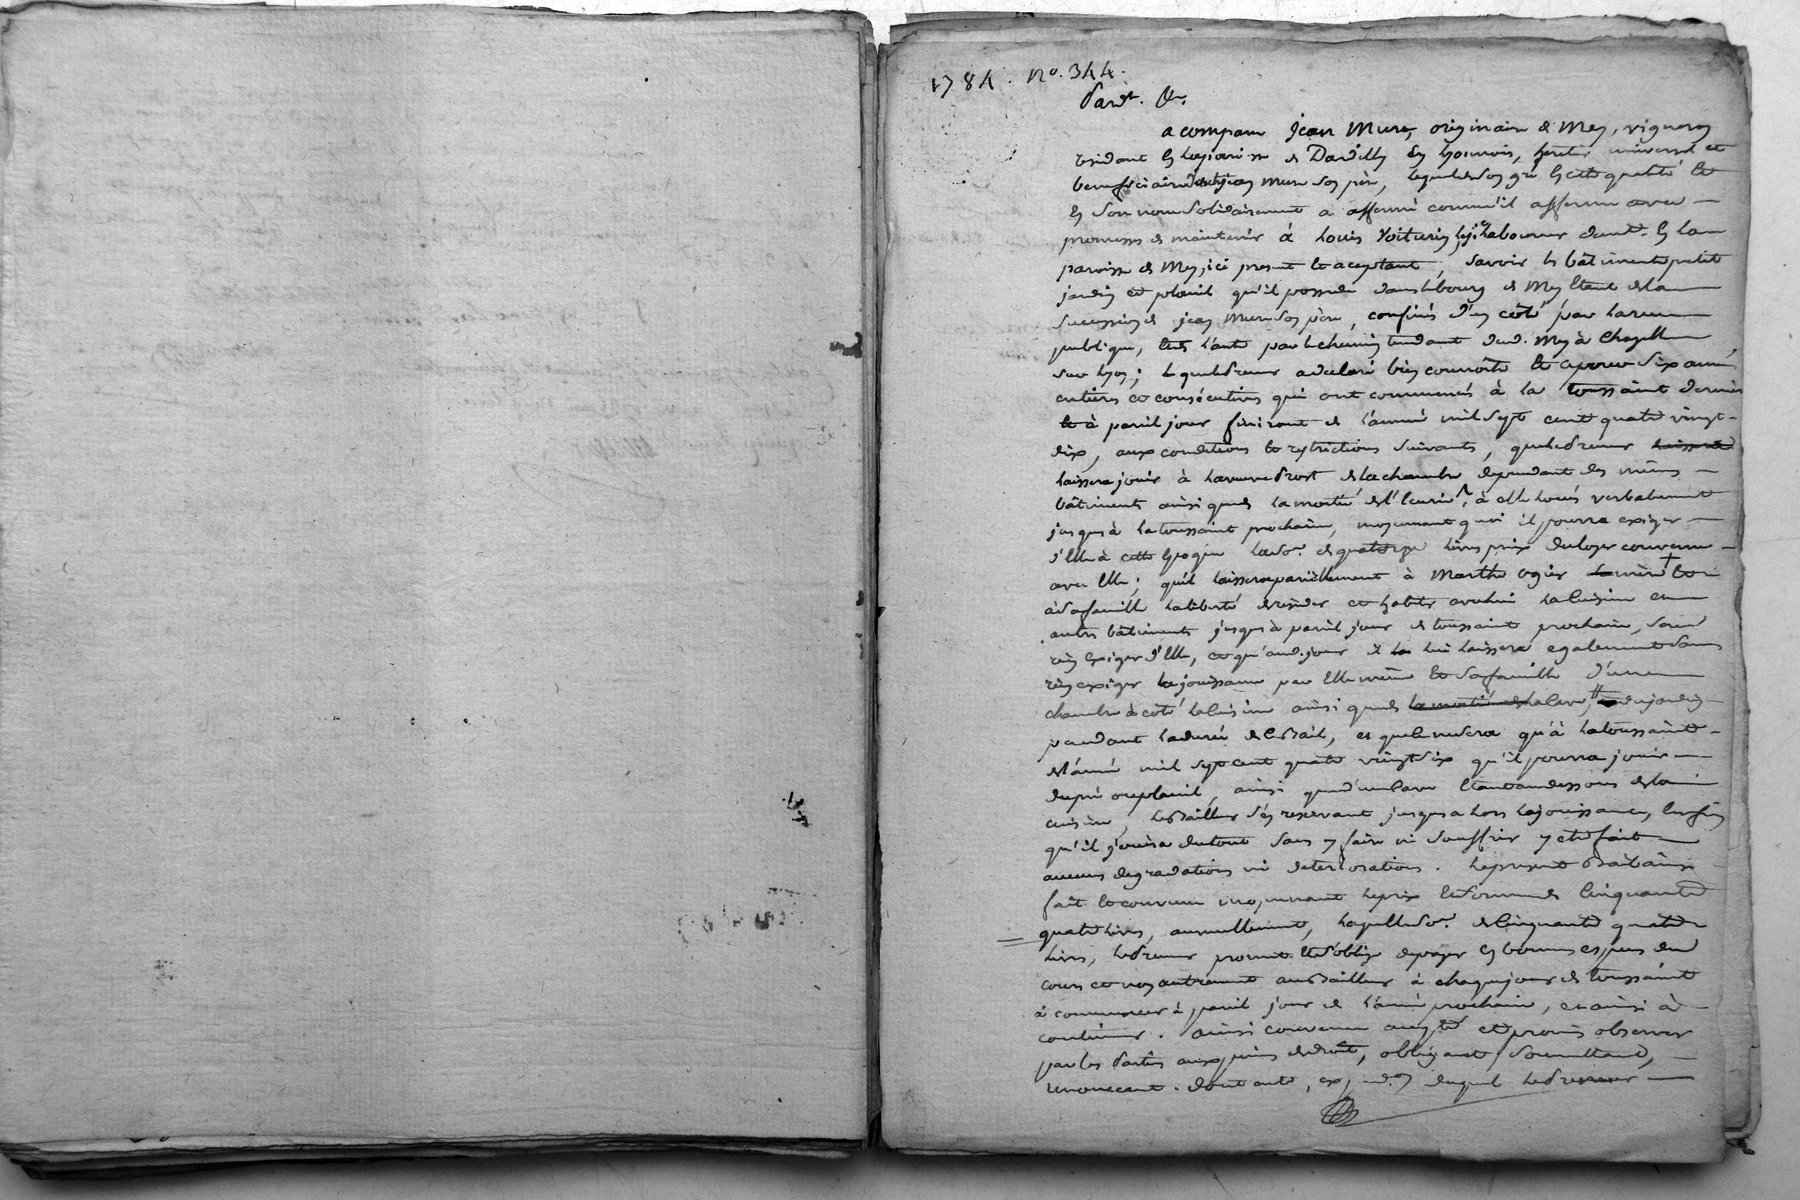 1784. No. 344.
Pardt. &c.
a comparu jean Mure, originaire de Mey, vigneron
residant en la paroisse de Dardilly en lyonnois, heritier universel et
beneficiaire dudit jean Mure son pere, lequel de son gré en cette qualité et
en son nom solidairement a affermé comme il afferme avec
promesse de maintenir à Louis Voiturin laboureur demt. en la
paroisse de Mey, ici present et aceptant, savoir les bâtiments petit
jardin et plenil qu'il possede dans le bourg de Mey etant de la
succession de jean Mure son père, confinés d'un côté par la rue
publique, et de l'autre par le chemin tendant dud. Mey à Chazelle
sur lyon; lequel preneur a declaré bien connoitre et ce pour six années
entieres et consécutives qui ont commencés à la toussaint derniere
et à pareil jour finiront de l'année mil sept cent quatre vingt
dix, aux conditions et restrictions suivantes, que le preneur
laissera jouir à la veuve Prost de la chambre dependant des mêmes
bâtiments ainsi que de la moitié de l'ecurie à elle loués verbalement
jusques à la toussaint prochaine, moyennant quoi il pourra exiger
d'elle à cette epoque la so.e de quatorze livres prix du loyer convenu
avec elle; qu'il laissera pareillement à Marthe ogier sa mère et
à sa famille la liberté de resider et habiter avec lui la cuisine et
autres bâtiments jusques à pareil jour de toussaint prochaine, sans
rien exiger d'elle, et qu'aud. jour il lui laissera egalement sans
rien exiger la jouissance par elle même et sa famille d'une
chambre à côté la cuisine ainsi que de la moitié de la cave, et du jardin
pendant la durée de ce Bail, et que ce ne sera qu'à la toussaint
de l'année mil sept cent quatre vingt six qu'il pourra jouir
du pré ou plenil, ainsi que d'une cave etant au dessous de la
cuisine, le Bailleur s'en reservant jusques alors la jouissance, enfin
qu'il jouira du tout sans y faire ni souffrir y etre fait
aucunes degradations ni deteriorations. le present Bail ainsi
fait et convenu moyennant le prix et somme de cinquante
quatre livres, annuellement, laquelle so.e de cinquante quatre
livres, le preneur promet et s'oblige de payer en bonnes especes du
cours et non autrement au Bailleur à chaque jour de toussaint
à commencer à pareil jour de l'année prochaine, et ainsi à
continuer. ainsi convenu accepté et promis observer
par les parties aux peines de droit, obligeant, soumettant,
renonceant. dont acte, le preneur